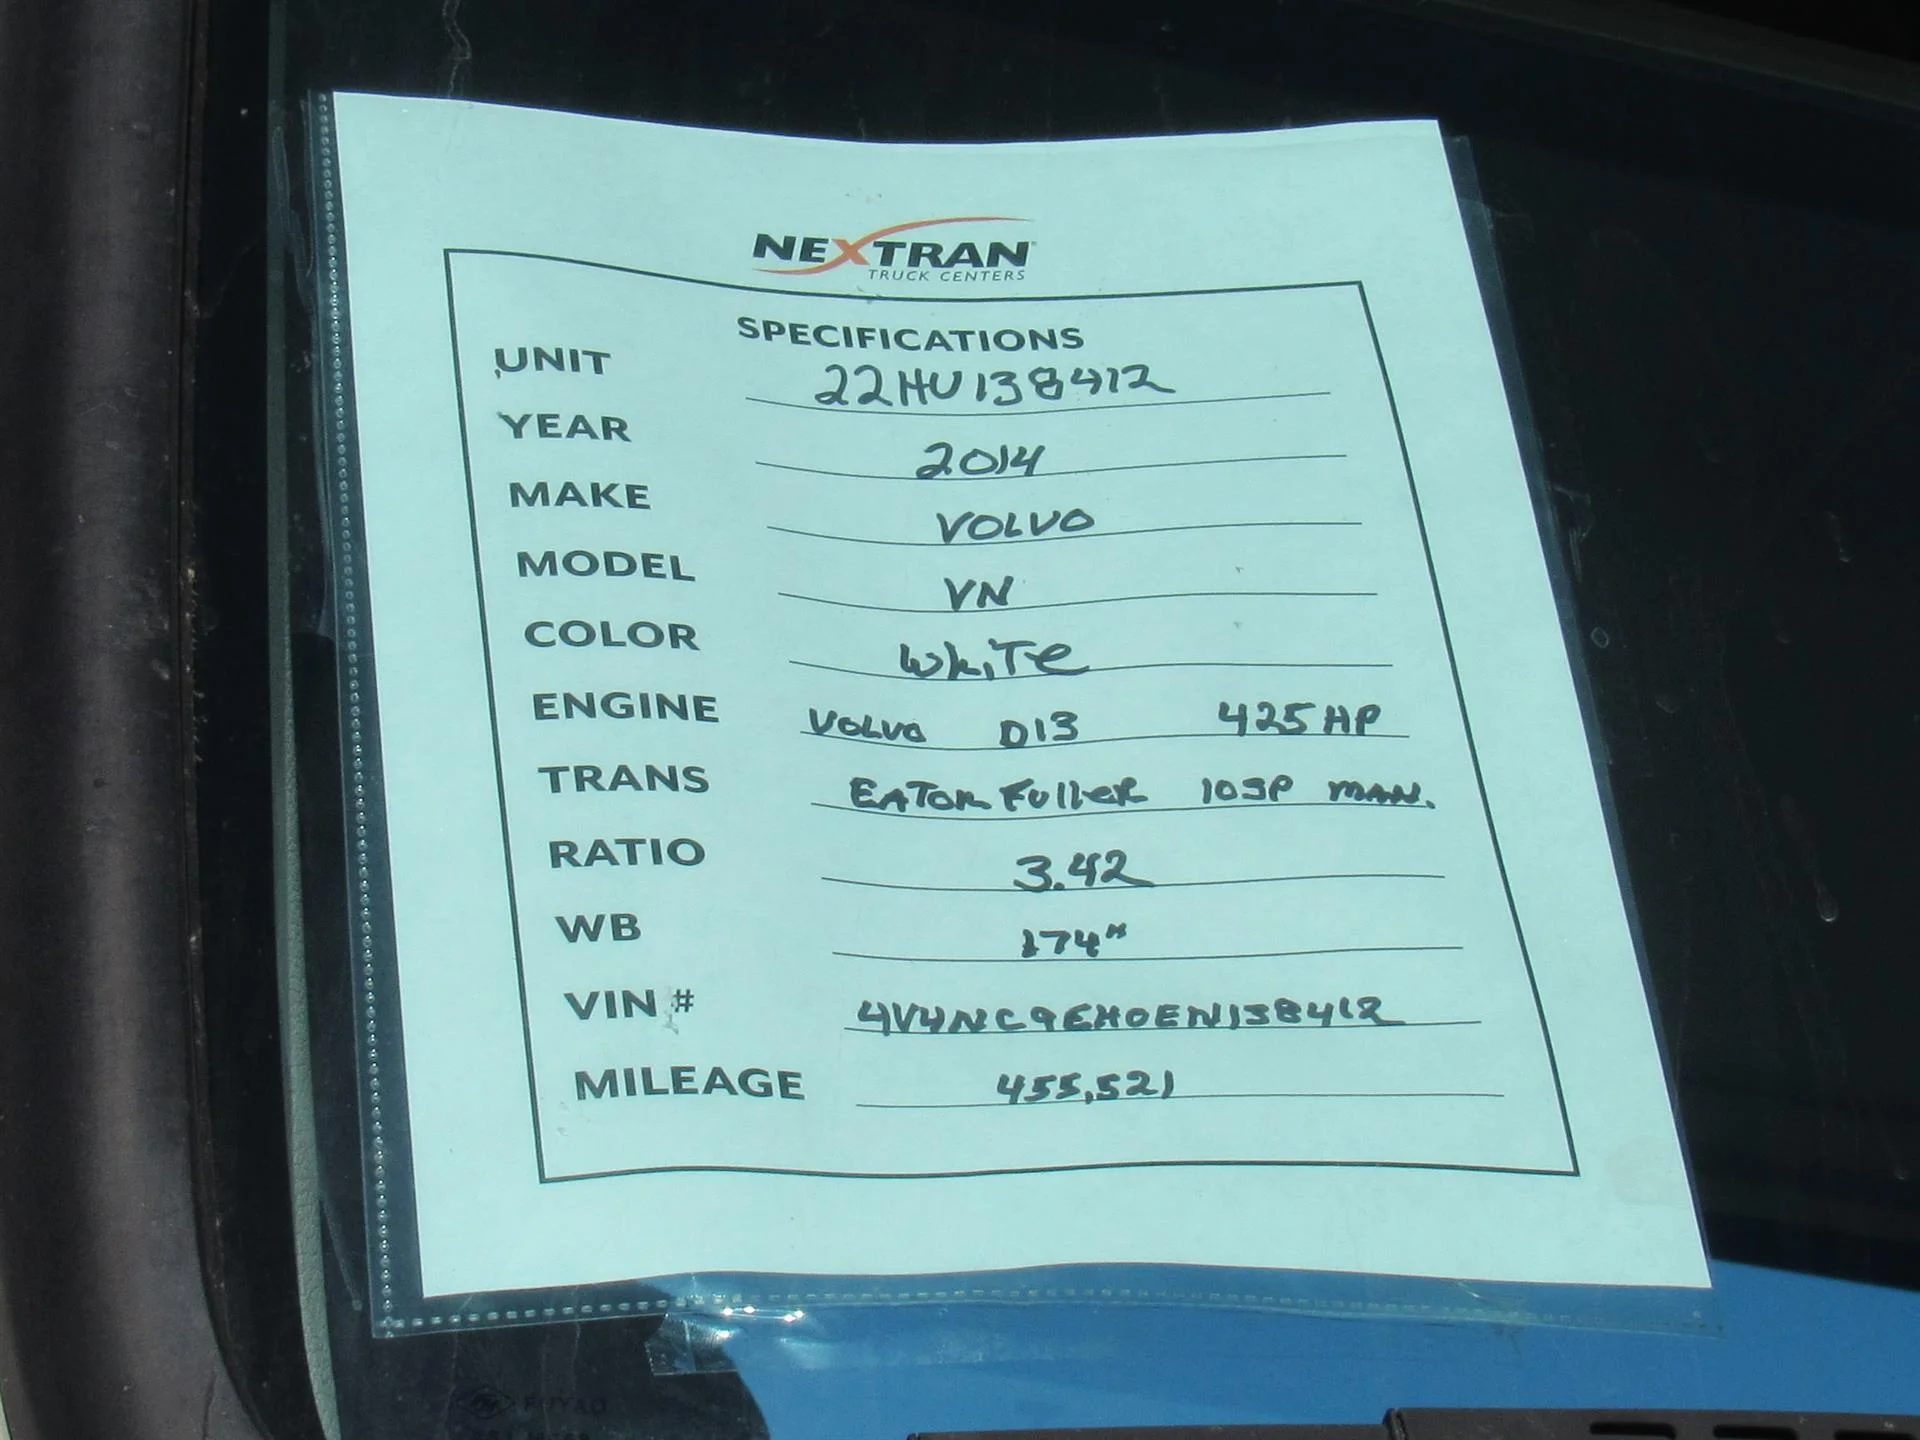 NEXTRAN
TRUCK CENTERS
SPECIFICATIONS
UNIT 22HU138412
YEAR 2014
MAKE VOLVO
MODEL VN
COLOR WhiTe
ENGINE VOLVO D13 425 HP
TRANS EATON FullER 10SP MAN.
RATIO 3.42
WB 174"
VIN # 4V4NC9EH0EN138412
MILEAGE 455,521
FUYAO